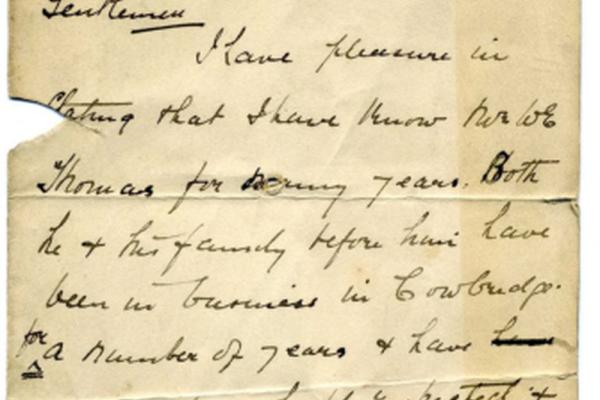 Gentlemen
I have pleasure in
stating that I have know Mr WE
Thomas for many years. Both
he & his family before him have
been in business in Cowbridge.
for
a number of years & have